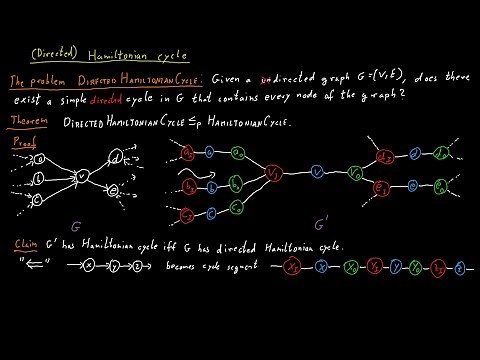 (Directed) Hamiltonian cycle
The problem DIRECTEDHAMILTONIANCYCLE: Given a directed graph G=(V,E), does there
exist a simple directed cycle in G that contains every node of the graph?
Theorem DIRECTEDHAMILTONIANCYCLE ≤p HAMILTONIANCYCLE.
Proof
a d b v c e
a_I a a_O b_I b b_O c_I c c_O v_I v v_O d_I d d_O e_I e e_O
G G'
Claim G' has Hamiltonian cycle iff G has directed Hamiltonian cycle.
"⇐" x y z becomes cycle segment x_I x x_O y_I y y_O z_I z